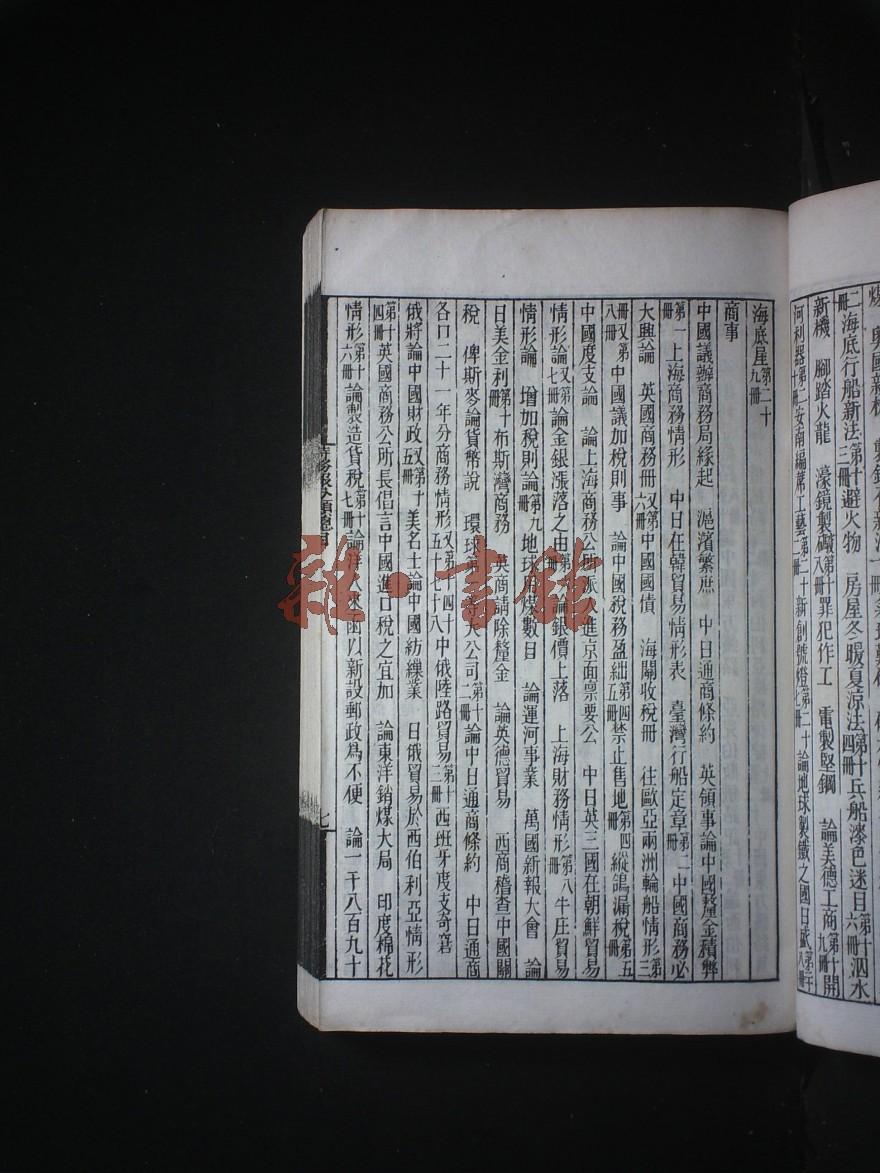 二冊海底行船新法第十三冊避火物　房屋冬暖夏涼法第十四冊兵船漆色迷目第十六冊泅水
新機　腳踏火龍　濠鏡製礟第十八冊罪犯作工　電製堅鋼　論美德工商第十九冊開
河利器第二十冊安南編蓆工藝第二十二冊新創號燈第二十七冊論地球製鐵之國日盛第二十八冊
海底屋第二十九冊
商事
中國議辦商務局緣起　滬濱繁庶　中日通商條約　英領事論中國釐金積弊
第一冊上海商務情形　中日在韓貿易情形表　臺灣行船定章第二冊中國商務必
大興論　英國商務冊又第六冊中國國債　海關收稅冊　往歐亞兩洲輪船情形第三
冊又第八冊中國議加稅則事　論中國稅務盈絀第四冊禁止售地第四冊縱鴿漏稅第五冊
中國度支論　論上海商務公所派人進京面禀要公　中日英三國在朝鮮貿易
情形論又第七冊論金銀漲落之由第十冊論銀價上落　上海財務情形第八冊牛庄貿易
情形論　增加稅則論第九冊地球分煤數目　論運河事業　萬國新報大會　論
日美金利第十冊布斯灣商務　英商請除釐金　論英德貿易　西商稽查中國關
稅　俾斯麥論貨幣說　環球第一等大公司第十二冊論中日通商條約　中日通商
各口二十一年分商務情形又第四十五十七十八中俄陸路貿易第十三冊西班牙度支奇窘
俄將論中國財政又第十五冊美名士論中國紡織業　日俄貿易於西伯利亞情形
第十四冊英國商務公所長倡言中國進口稅之宜加　論東洋銷煤大局　印度棉花
情形第十六冊論製造貨稅第十七冊論洋人來函以新設郵政為不便　論一千八百九十
時務報分類總目
七
雜·書館